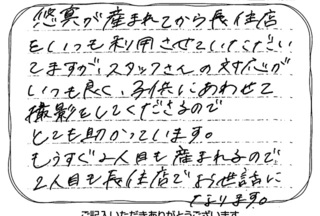 悠真が産まれてから長住店
をいつも利用させていただい
てますが、スタッフさんの対応が
いつも良く、子供にあわせて
撮影をしてくださるので
とても助かっています。
もうすぐ2人目も産まれるので
2人目も長住店でお世話に
なります。
ご記入いただきありがとうございます